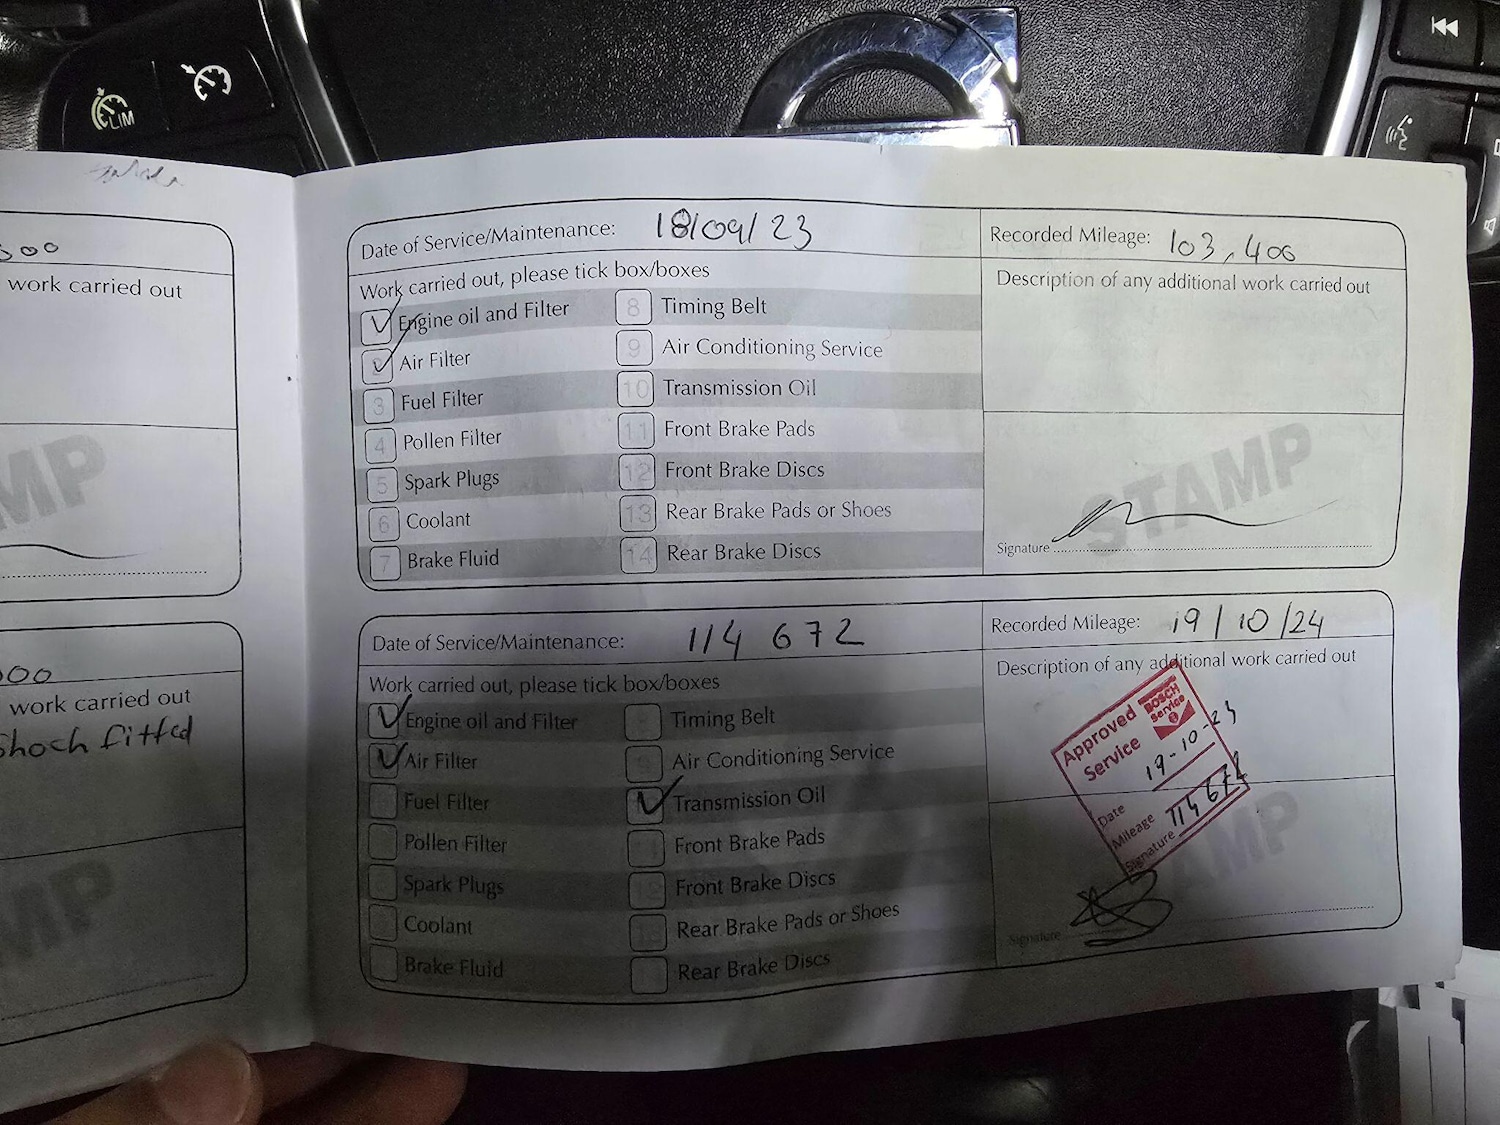 LIM
500
work carried out
STAMP
000
work carried out
Shock fitted
Date of Service/Maintenance: 18/09/23
Recorded Mileage: 103,400
Work carried out, please tick box/boxes
Description of any additional work carried out
Engine oil and Filter
8 Timing Belt
2 Air Filter
9 Air Conditioning Service
3 Fuel Filter
10 Transmission Oil
4 Pollen Filter
11 Front Brake Pads
5 Spark Plugs
12 Front Brake Discs
6 Coolant
13 Rear Brake Pads or Shoes
7 Brake Fluid
14 Rear Brake Discs
STAMP
Signature
Date of Service/Maintenance: 114 672
Recorded Mileage: 19/10/24
Work carried out, please tick box/boxes
Description of any additional work carried out
Engine oil and Filter
Timing Belt
Air Filter
Air Conditioning Service
Fuel Filter
Transmission Oil
Pollen Filter
Front Brake Pads
Spark Plugs
Front Brake Discs
Coolant
Rear Brake Pads or Shoes
Brake Fluid
Rear Brake Discs
Approved
Service
BOSCH
Service
Date 19-10-
Mileage 114672
Signature
STAMP
Signature